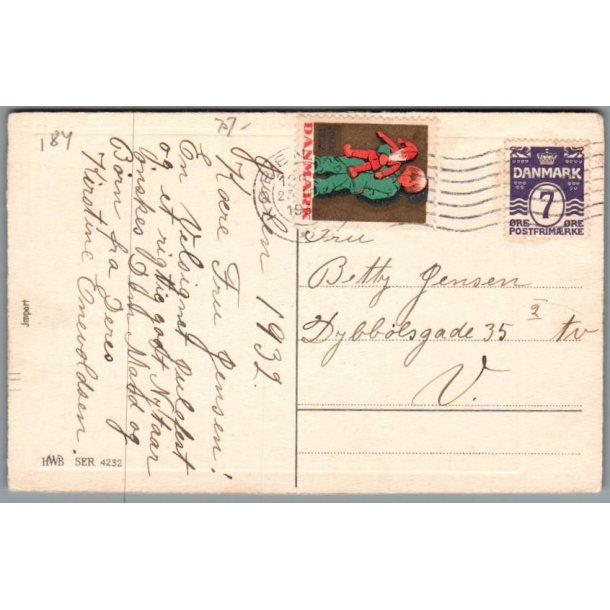 184
77-
Julen 1932.
Kære Fru Jensen!
En Velsignet Julefest
og et rigtig godt Nytaar
ønskes Dem Mand og
Børn fra Deres
Kirstine Enevoldsen.
DANMARK
DANMARK
7
ØRE ØRE
POSTFRIMÆRKE
Fru
Betty Jensen
Dybbølsgade 35 2 tv
V.
Import
HWB SER 4232